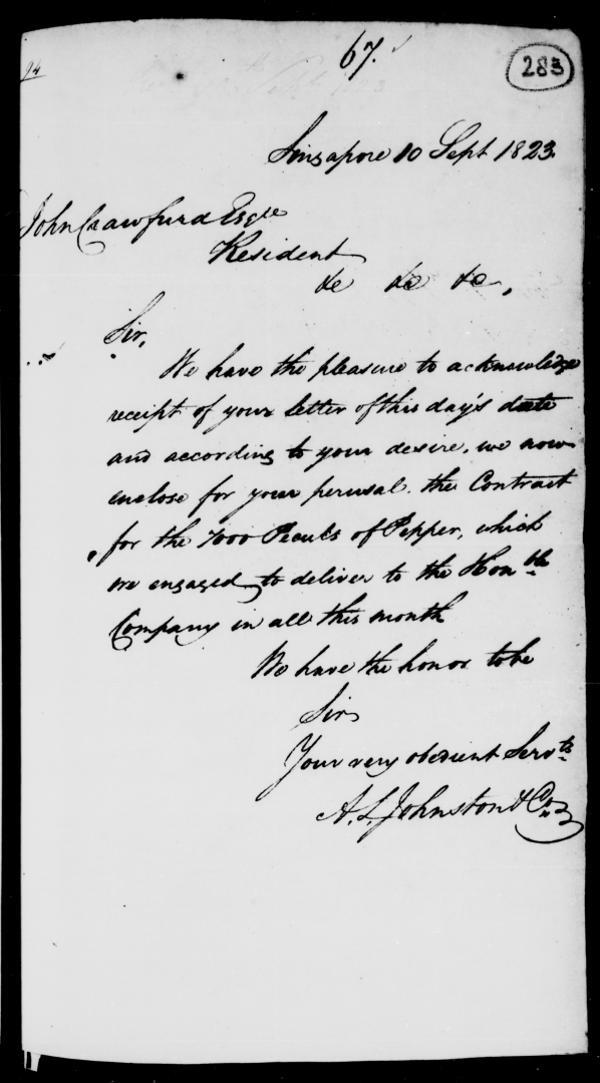 67.
283
94
Singapore 10 Sept 1823.
John Crawfurd Esqre
Resident
&c &c &c,
Sir,
We have the pleasure to acknowledge
receipt of your letter of this day's date
and according to your desire, we now
enclose for your perusal the Contract
for the 7000 Peculs of Pepper, which
we engaged to deliver to the Honble
Company in all this month
We have the honor to be
Sir
Your very obedient Servts
A. L. Johnston & Co